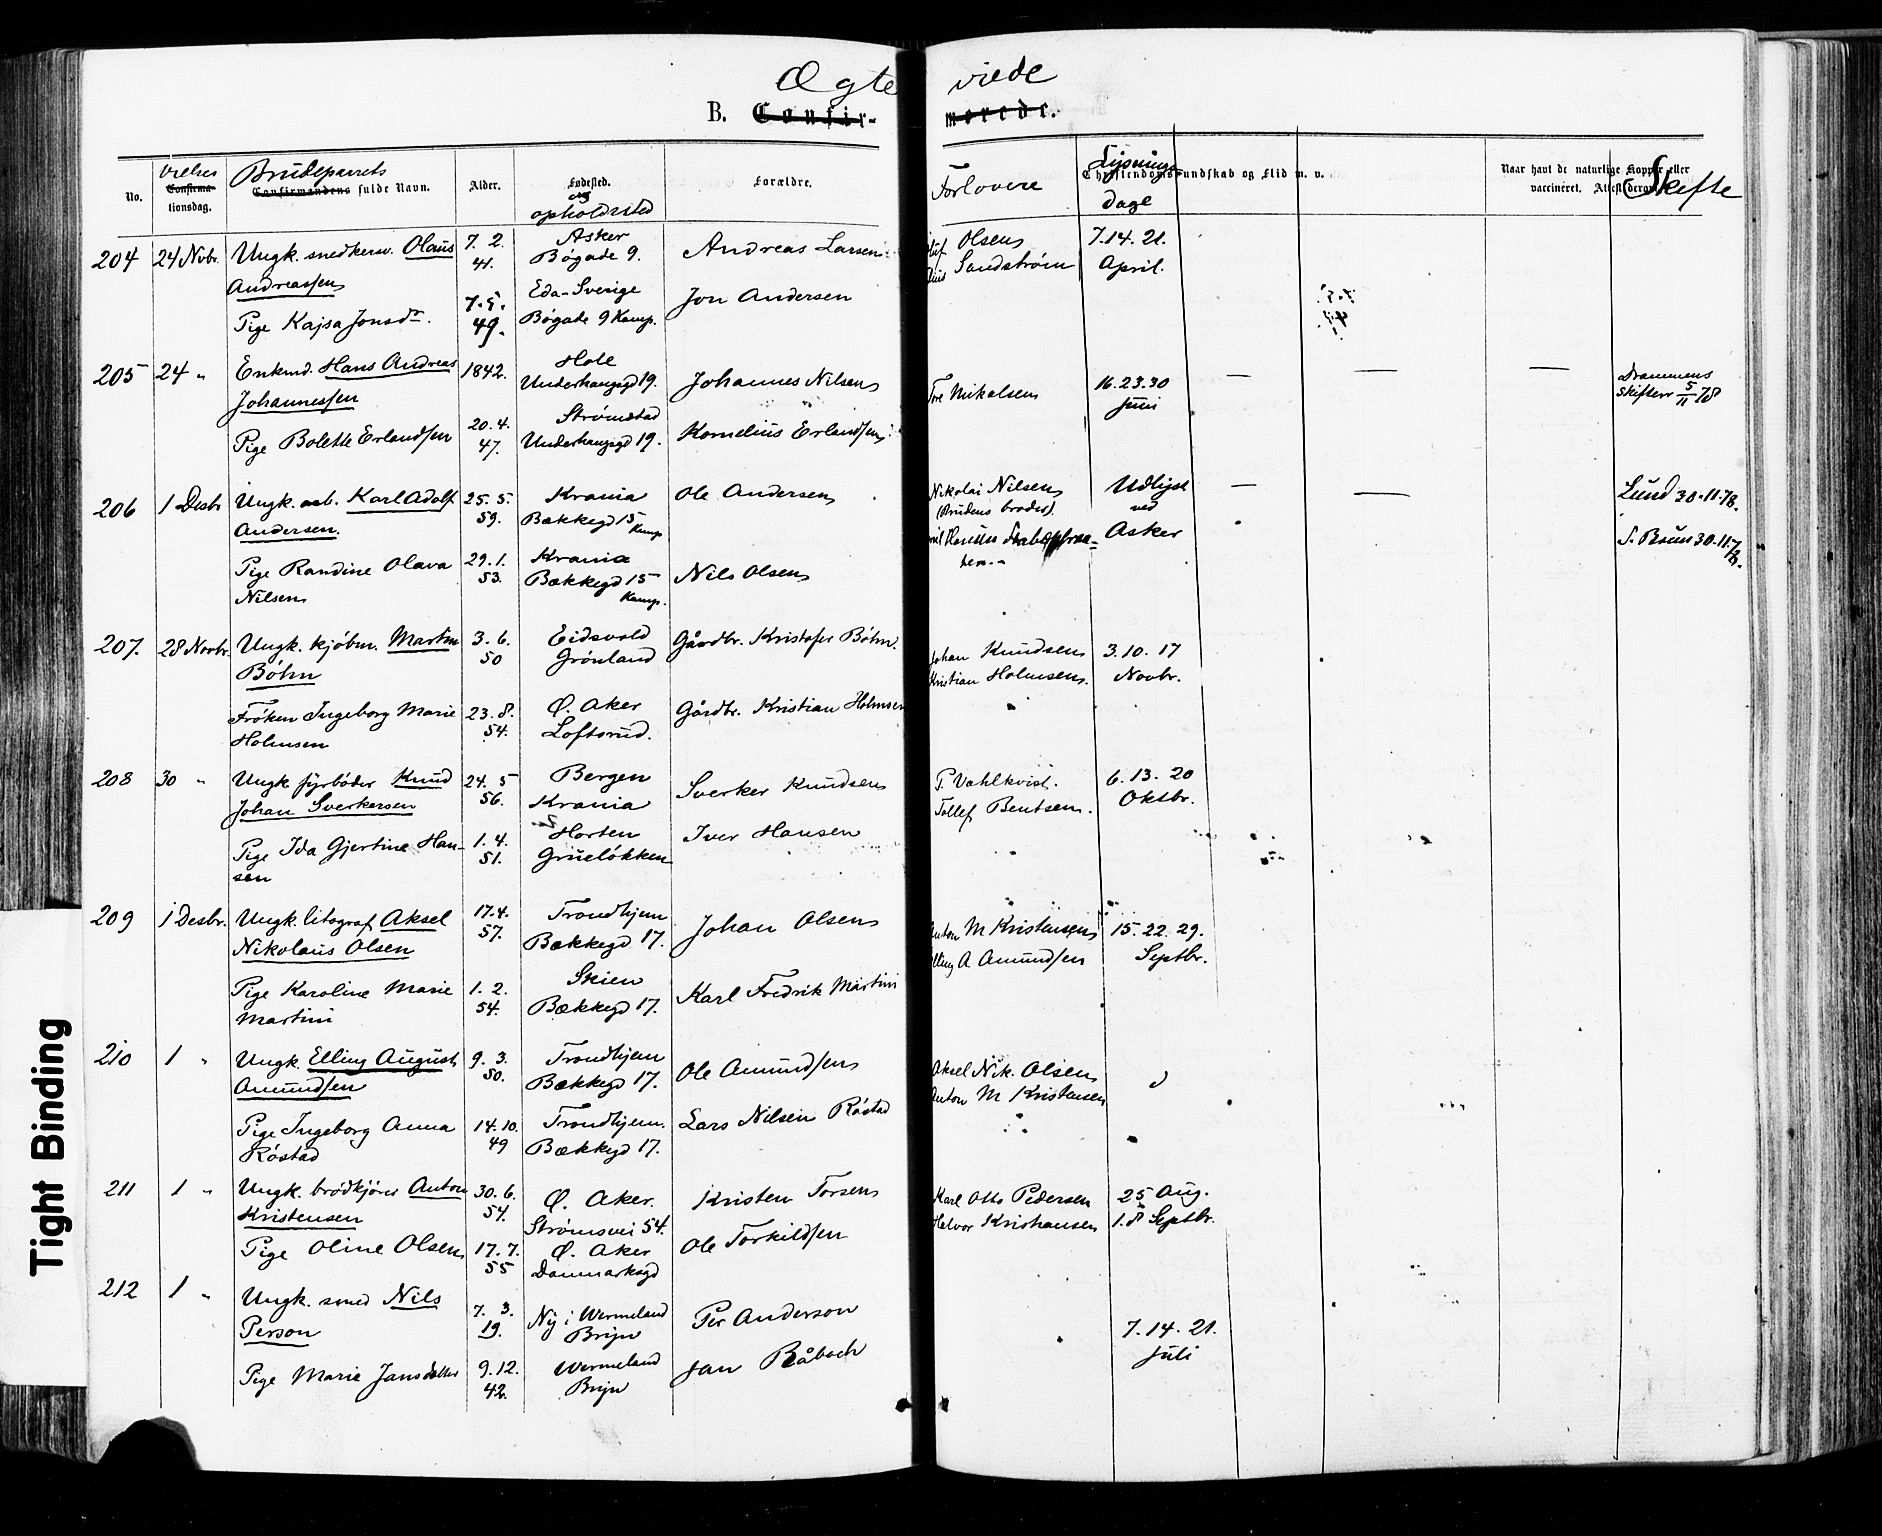 Ægte viede
B. Confir- merede.
No.
Vielses
Confirma-
tionsdag.
Brudeparrets
Confirmandens fulde Navn.
Alder.
Fødested.
og
opholdssted
Forældre.
Forlovere
Lysnings
Christendomskundskab og Flid m. v.
dage
Naar havt de naturlige Kopper eller
vaccineret. Attest derom
Skifte
204 24 Novbr. Ungk. snedkersv. Olaus 7. 2. Asker Andreas Larsen Olsen 7. 14. 21.
Andreassen 41. Bøgade 9. Sandstrøm April.
Eda-Sverige Jon Andersen
Pige Kajsa Jonsdr. 7. 5. Bøgade 9 Kamp.
49.
205 24 " Enkmd. Hans Andreas 1842. Hole Johannes Nilsen Tore Nikolsen 16. 23. 30 — — — Drammens
Johannessen Underhaugsgd 19. Juni Skifterr 5/11 78
Pige Bolette Erlandsen 20. 4. Strømstad Kornelius Erlandsen
47. Underhaugsgd 19.
206 1 Desbr Ungk. arb. Karl Adolf 25. 5. Krania Ole Andersen Nikolai Nilsen Udlyst — — Lund 30.11.78.
Andersen. 59. Bækkegd 15 Kamp (Brudens broder). ved
Asker S. Bruun 30.11.78.
Pige Randine Olava 29. 1. Krania Nils Olsen
Nilsen 53. Bækkegd 15 Kamp.
207. 28 Novbr. Ungk. kjøbm. Martin 3. 6. Eidsvold Gårdbr. Kristofer Bøhn. Johan Knudsen 3. 10. 17
Bøhn 50 Grønland Kristian Holmsen. Novbr.
Frøken Ingeborg Marie 23. 8. Ø. Aker Gårdbr. Kristian Holmsen
Holmsen 54. Loftsrud.
208 30 " Ungk. fyrbøder Knud 24. 5 Bergen Sverker Knudsen P. Vahlkvist. 6. 13. 20
Johan Sverkersen 56. Krania Tollef Bentsen. Oktbr.
Pige Ida Gjertine Han- 1. 4. Horten Iver Hansen
sen 51. Grueløkken
209 1 Desbr. Ungk. litograf Aksel 17. 4. Trondhjem Johan Olsen Anton M Kristensen 15. 22. 29.
Nikolaus Olsen 57. Bækkegd 17. Elling A Amundsen Septbr.
Pige Karoline Marie 1. 2. Skien Karl Fredrik Martini
Martini 54. Bækkegd 17.
210 1 " Ungk. Elling August 9. 3. Trondhjem Ole Amundsen Aksel Nik. Olsen
Amundsen 50. Bækkegd 17. Anton M Kristensen
Pige Ingeborg Anna 14. 10. Trondhjem. Lars Nilsen Røstad
Røstad 49 Bækkegd 17.
211 1 " Ungk. brødkjører Anton 30. 6. Ø. Aker. Kristen Torsen Karl Otto Pedersen 25 Aug.
Kristensen 54. Strømsvei 54. Halvor Kristiansen 1. 8 Septbr.
Pige Oline Olsen 17. 7. Ø. Aker Ole Torkildsen
55 Danmarksgd
212 1 " Ungk. smed Nils 7. 3. Ny i Wermeland Per Anderson 7. 14. 21.
Person 19. Bryn Juli
Pige Marie Jansdatter 9. 12. Wermeland Jan Råback
42. Bryn
Tight Binding